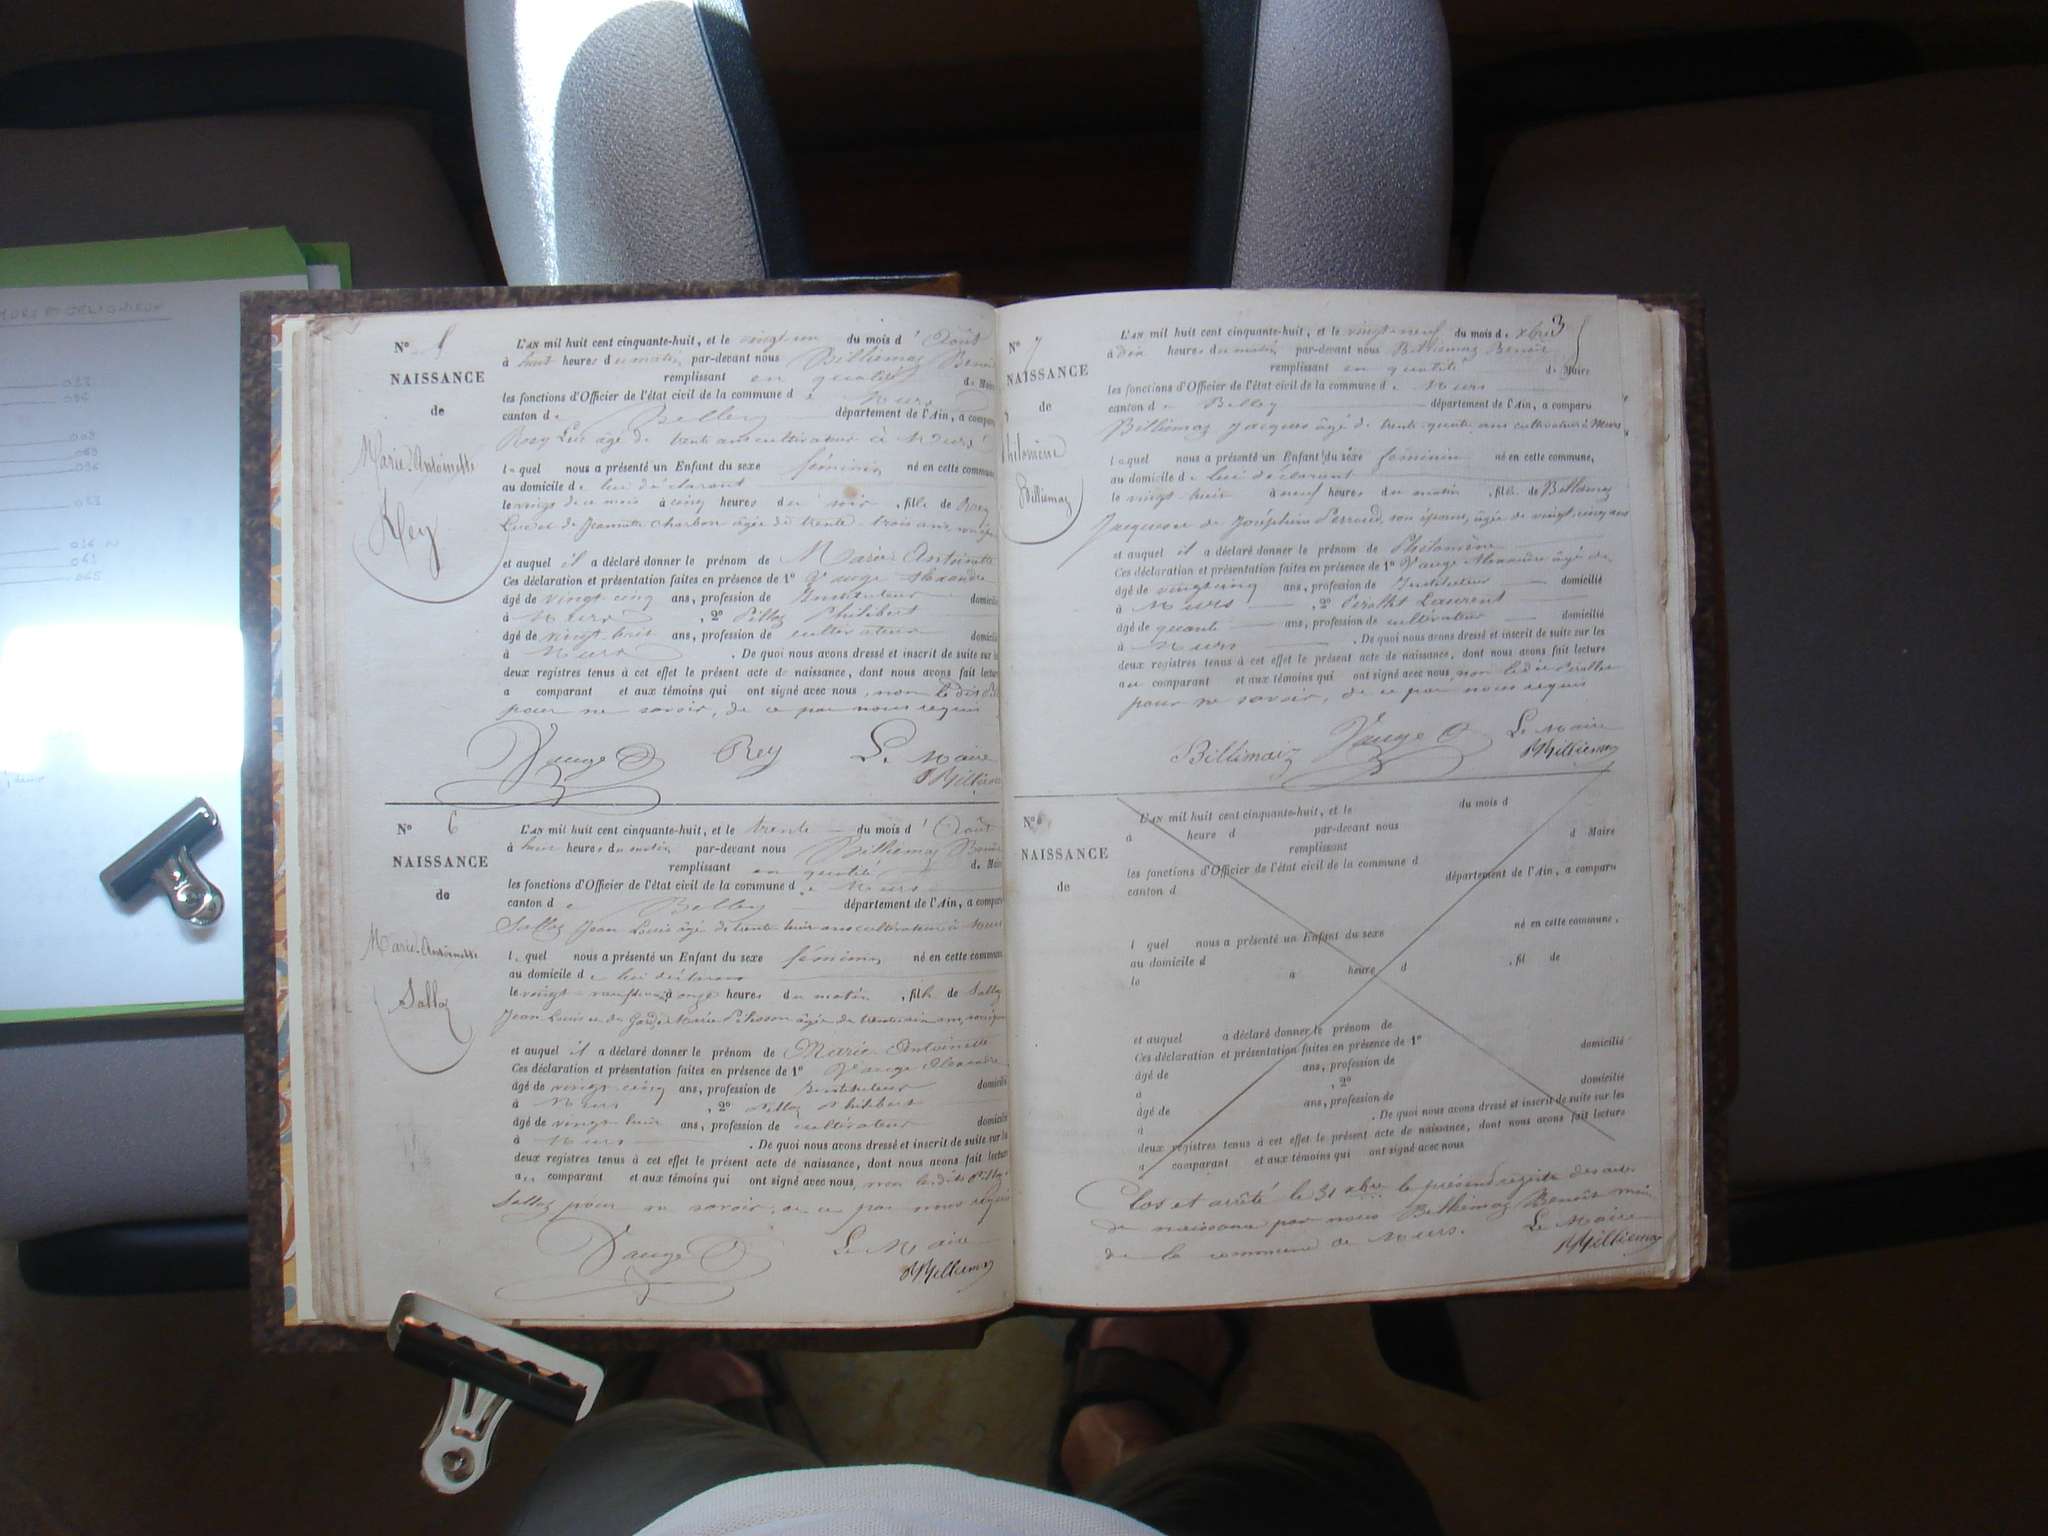 N° 5
NAISSANCE
de
Marie-Antoinette
Rey
L'AN mil huit cent cinquante-huit, et le vingt-un du mois d' Août
à huit heures du matin par-devant nous Billiemaz Benoît
remplissant en qualité de Maire
les fonctions d'Officier de l'état civil de la commune de Murs
canton de Belley département de l'Ain, a comparu
Rey Luc âgé de trente ans cultivateur à Murs
lequel nous a présenté un Enfant du sexe féminin né en cette commune
au domicile de lui déclarant
le vingt de ce mois à cinq heures du soir, fille de Rey
Luc et de Jeannette Charbon âgée de trente-trois ans
et auquel il a déclaré donner le prénom de Marie Antoinette
Ces déclaration et présentation faites en présence de 1° Vauge Alexandre
âgé de vingt-cinq ans, profession de Instituteur domicilié
à Murs, 2° Pilloz Philibert
âgé de vingt-huit ans, profession de cultivateur domicilié
à Murs. De quoi nous avons dressé et inscrit de suite sur les
deux registres tenus à cet effet le présent acte de naissance, dont nous avons fait lecture
a comparant et aux témoins qui ont signé avec nous, non le dit
pour ne savoir, de ce par nous requis
Vauge Rey Le Maire
Billiemaz
N° 6
NAISSANCE
de
Marie-Antoinette
Salloz
L'AN mil huit cent cinquante-huit, et le trente du mois d' Août
à heures du matin par-devant nous Billiemaz Benoît
remplissant en qualité de Maire
les fonctions d'Officier de l'état civil de la commune de Murs
canton de Belley département de l'Ain, a comparu
Salloz Jean Louis âgé de trente huit ans cultivateur à Murs
lequel nous a présenté un Enfant du sexe féminin né en cette commune
au domicile de lui déclarant
le vingt-neuf à onze heures du matin, fille de Salloz
Jean Louis et de Marie Pélisson âgée de trente ans
et auquel il a déclaré donner le prénom de Marie Antoinette
Ces déclaration et présentation faites en présence de 1° Vauge Alexandre
âgé de vingt-cinq ans, profession de Instituteur domicilié
à Murs, 2° Pilloz Philibert
âgé de vingt-huit ans, profession de cultivateur domicilié
à Murs. De quoi nous avons dressé et inscrit de suite sur les
deux registres tenus à cet effet le présent acte de naissance, dont nous avons fait lecture
au comparant et aux témoins qui ont signé avec nous, non lesdits Pilloz
Salloz pour ne savoir, de ce par nous requis
Vauge Le Maire
Billiemaz
3
N° 7
NAISSANCE
de
Philomène
Billiemaz
L'AN mil huit cent cinquante-huit, et le vingt-neuf du mois de xbre
à dix heures du matin par-devant nous Billiemaz Benoît
remplissant en qualité de Maire
les fonctions d'Officier de l'état civil de la commune de Murs
canton de Belley département de l'Ain, a comparu
Billiemaz Jacques âgé de trente ans cultivateur à Murs
lequel nous a présenté un Enfant du sexe féminin né en cette commune,
au domicile de lui déclarant
le vingt-huit à neuf heures du matin, fille de Billiemaz
Jacques et de Joséphine Perroud, son épouse, âgée de vingt-cinq ans
et auquel il a déclaré donner le prénom de Philomène
Ces déclaration et présentation faites en présence de 1° Vauge Alexandre âgé de
âgé de vingt-cinq ans, profession de Instituteur domicilié
à Murs, 2° Laurent
âgé de ans, profession de cultivateur domicilié
à Murs. De quoi nous avons dressé et inscrit de suite sur les
deux registres tenus à cet effet le présent acte de naissance, dont nous avons fait lecture
au comparant et aux témoins qui ont signé avec nous, non ledit
pour ne savoir, de ce par nous requis
Billiemaz Vauge Le Maire
Billiemaz
N°
NAISSANCE
de
L'AN mil huit cent cinquante-huit, et le du mois d
a heure d par-devant nous
remplissant d Maire
les fonctions d'Officier de l'état civil de la commune d
canton d département de l'Ain, a comparu
l quel nous a présenté un Enfant du sexe né en cette commune,
au domicile d
le a heure d , fil de
et auquel a déclaré donner le prénom de
Ces déclaration et présentation faites en présence de 1°
âgé de ans, profession de domicilié
a , 2°
âgé de ans, profession de domicilié
à . De quoi nous avons dressé et inscrit de suite sur les
deux registres tenus à cet effet le présent acte de naissance, dont nous avons fait lecture
a comparant et aux témoins qui ont signé avec nous
Clos et arrêté le 31 xbre le présent registre des actes
de naissance par nous Billiemaz Benoît maire
de la commune de Murs. Le Maire
Billiemaz